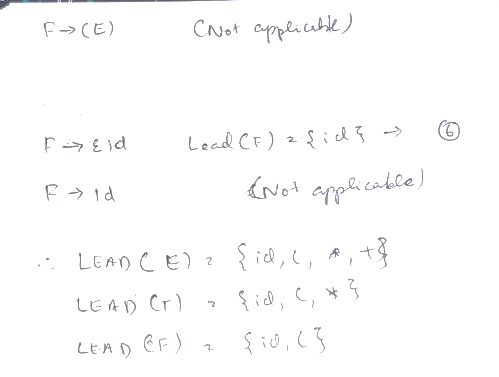 F → (E) (Not applicable)
F → ε id Lead(F) = {id} → ⑥
F → id (Not applicable)
∴ LEAD(E) = {id, (, *, +}
LEAD(T) = {id, (, *}
LEAD(F) = {id, (}